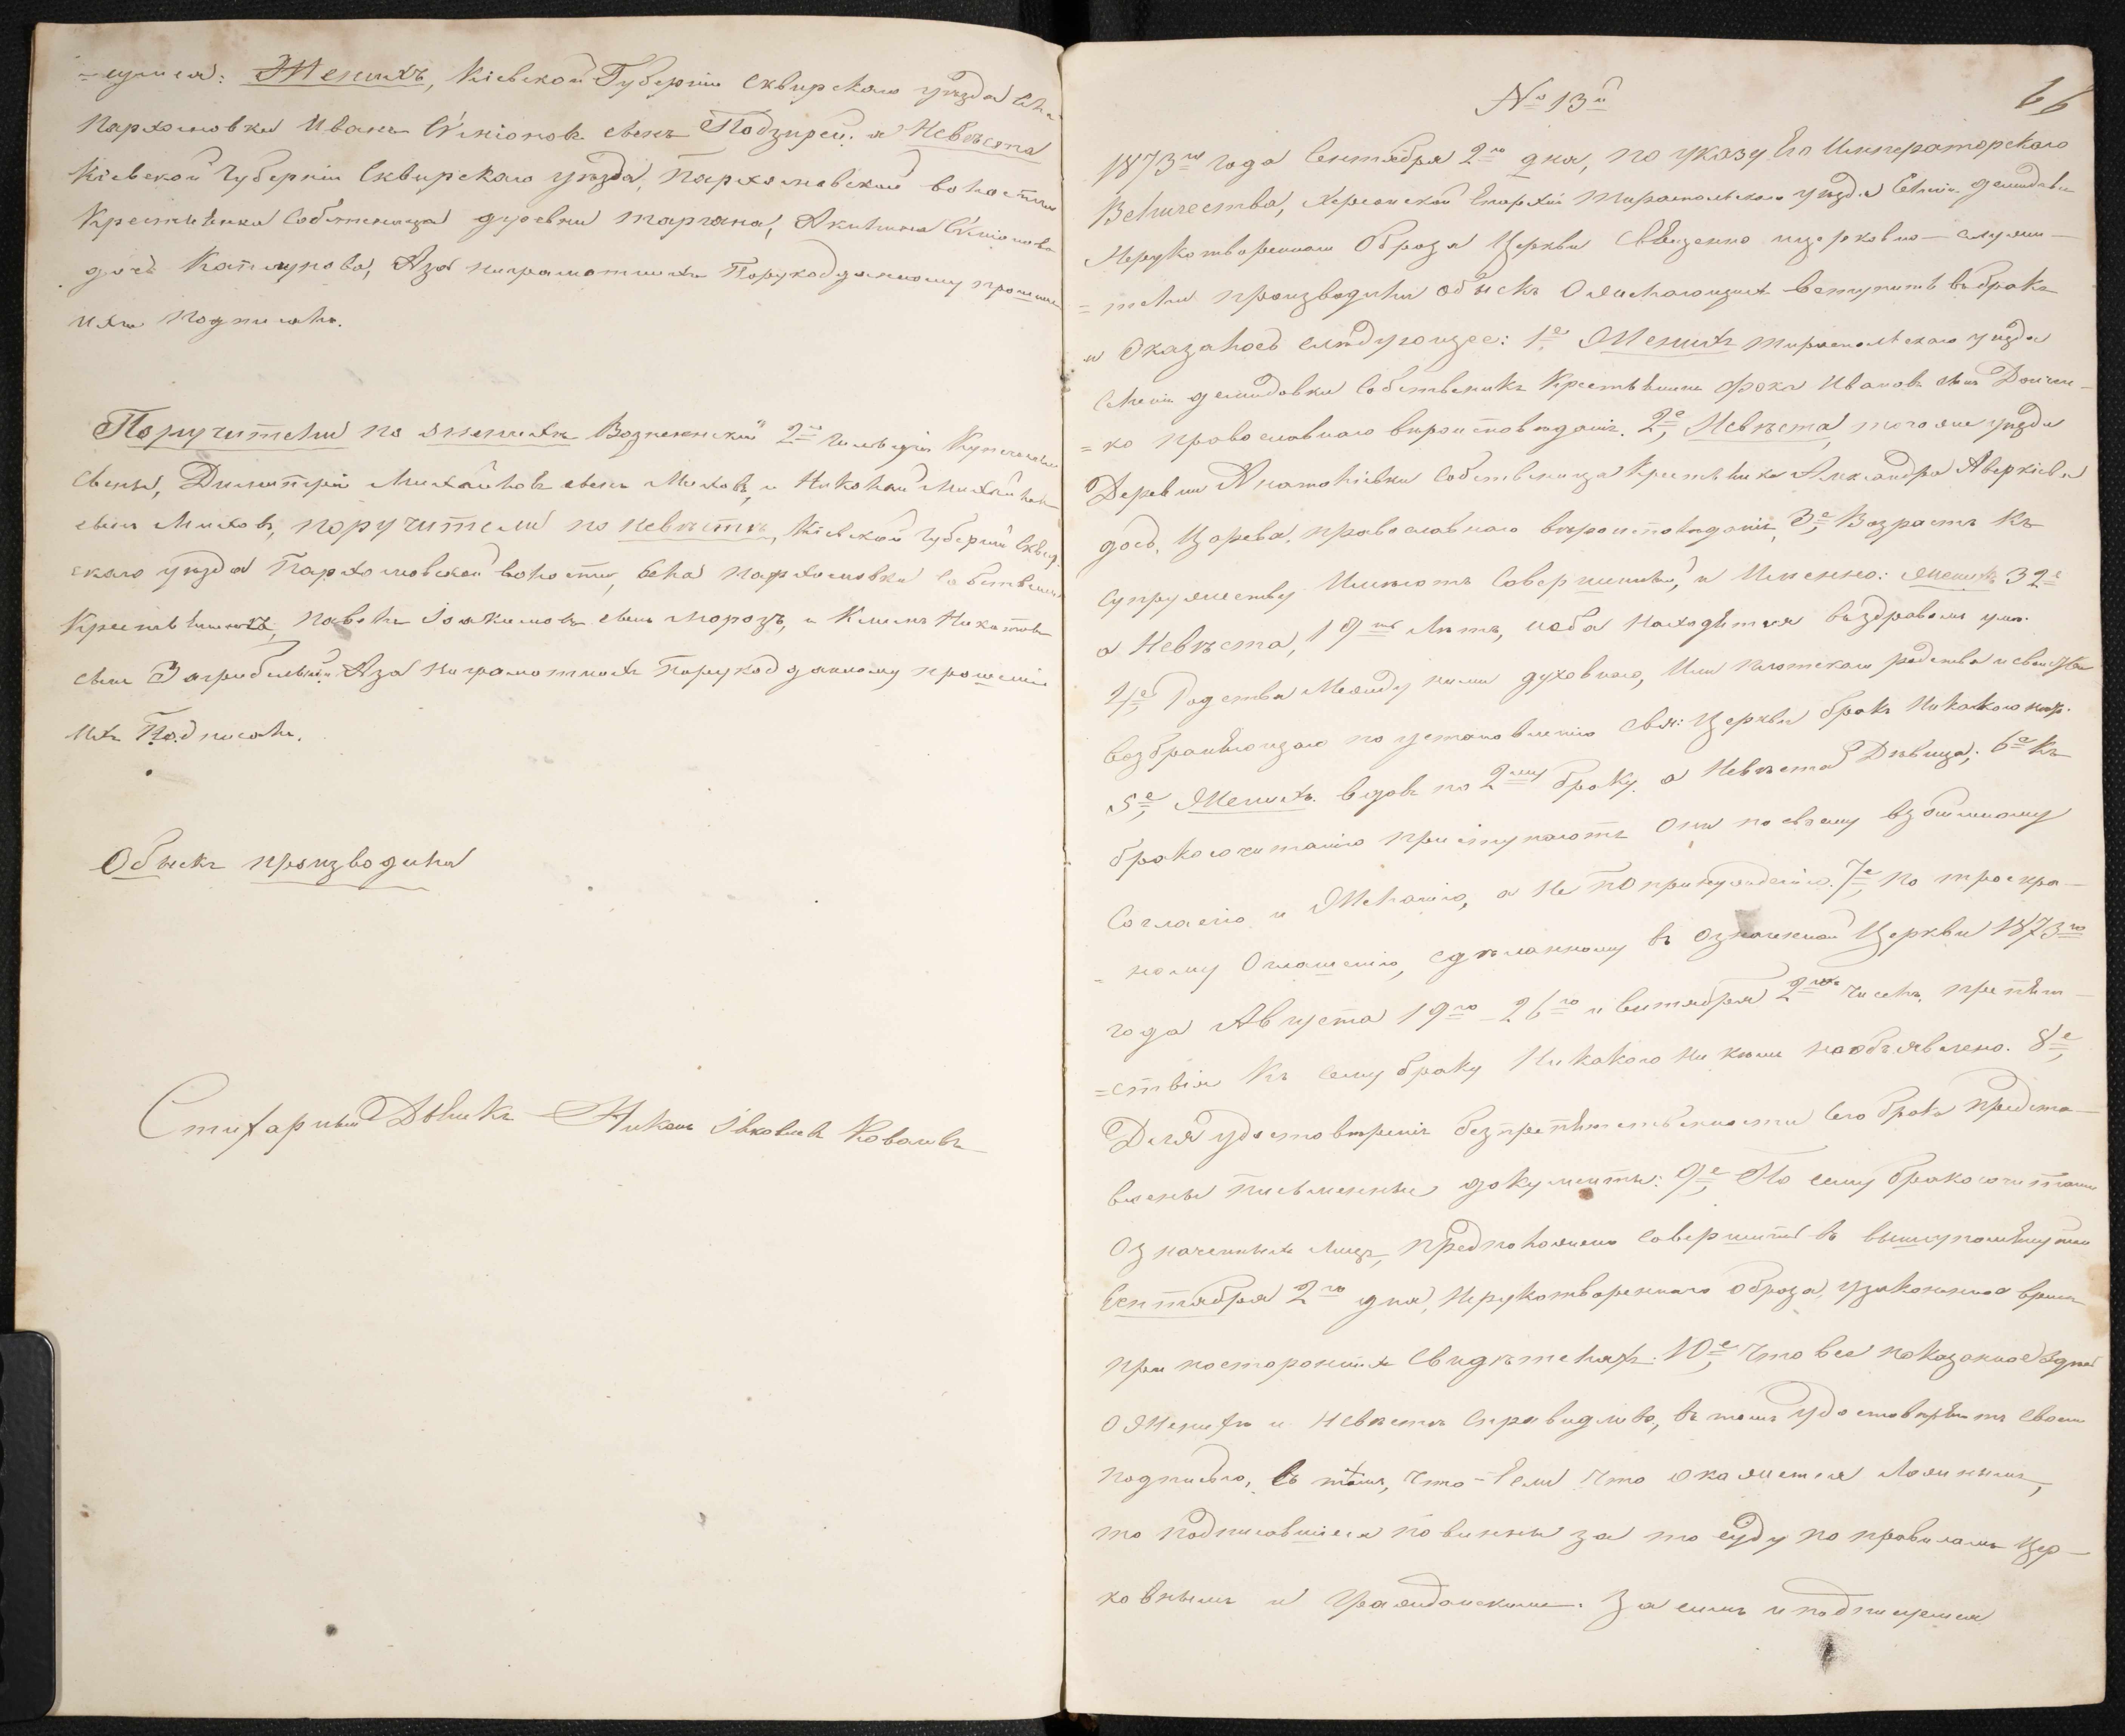 =щимся: Женихъ, Кіевской Губерніи Сквирскаго уѣзда села
Пархомовки Иванъ сынъ а Невѣста
Кіевской Губерніи Сквирскаго уѣзда, Пархомовской волости
Крестьянка Собственница деревни Акилина
дочь Аза неграмотныхъ По рукоданному прошенію
ихъ подписалъ.
Поручители по женихѣ Вознесенскій 2й гильдіи
сыны, Димитрій Михайловъ сынъ и Николай Михайловъ
сынъ поручители по невѣстѣ, Кіевской Губерніи Сквир-
скаго уѣзда Пархомовской волости, села Пархомовки собственники
Крестьяне, Павелъ Іоакимовъ сынъ Морозъ, и Климъ
сынъ Аза неграмотныхъ По рукоданному прошенію
ихъ Подписалъ.
Обыскъ производили
Стихарный Дьякъ Никонъ Ковалевъ
№ 13й
66
1873го года Сентября 2го дня, по указу Его Императорскаго
Величества, Херсонской Епархіи Тираспольскаго уѣзда Селенія Демидовки
Нерукотвореннаго Образа Церкви Священно ицерковно-служи-
=тели производили обыскъ о желающихъ вступить въ бракъ
и Оказалось слѣдующее: 1е Женихъ Тираспольскаго уѣзда
Селенія Демидовки Собственикъ Крестьянинъ Фока Ивановъ сынъ
=ко православнаго вѣроисповѣданія. 2е, Невѣста, того же уѣзда
Деревни Анатоліевки Собственица Крестьянка Александра Аверкіева
дочь, Царева, православнаго вѣроисповѣданія, 3е, Возрастъ къ
Супружеству Имѣютъ Совершенный, и Именно: женихъ 32е
а Невѣста, 19ть Лѣтъ, и оба находятся въ здравомъ умѣ.
4е, Родства Между ними духовнаго, Или плотскаго родства и свойства
возбраняющаго по установленію свя: церкви бракъ никакого нѣтъ.
5е, Женихъ вдовъ по 2му браку. а Невѣста Дѣвица; 6е Къ
бракосочитанію приступаютъ Они по своему взаимному
Согласію и Желанію, а Не по принужденію. 7е, По троекра-
=ному Оглашенію, сдѣланному въ означеной Церкви 1873го
года Августа 19го 26го и Сентября 2го числъ, препят-
=ствія Къ сему браку Никакого ни кѣмъ не объявлено. 8е,
Для удостовѣренія безпрепятственности сего брака предста-
влены письменные документы: 9е, По сему бракосочитаніе
Означенныхъ Лицъ, предположено совершить въ вышеупомянутой
Сентября 2го дня, Нерукотвореннаго образа, узаконенное время
при постороннихъ свидѣтеляхъ: 10е, что все показанное здѣсь
О Женихѣ и Невѣстѣ справедливо, въ томъ удостовѣряютъ своею
подписью, въ томъ, что-Если что окажется Ложнымъ,
то подписавшіеся повинны за то суду по правиламъ Цер-
ковнымъ и Гражданскимъ. За симъ и подпишемся